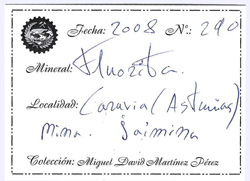 Fecha: 2008 Nº.: 290
Mineral: Fluorita.
Localidad: Caravia (Asturias)
Mina. Jaimina
Colección: Miguel David Martínez Pérez